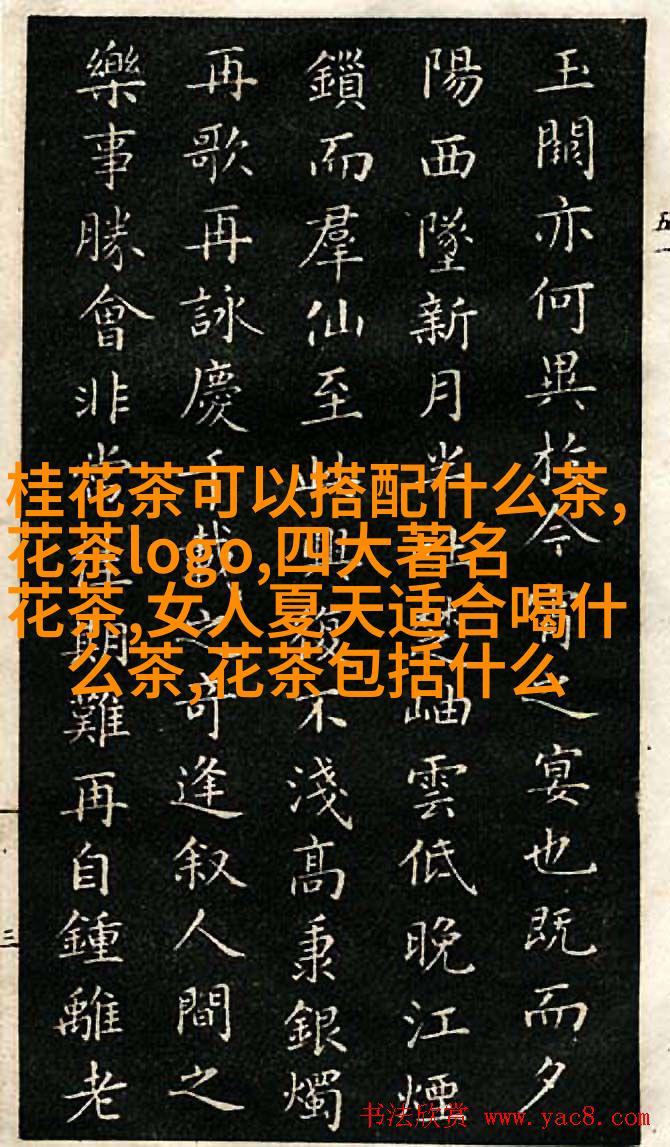 玉闕亦何異於今宵之宴也既而夕
陽西墜新月半出楚岫雲低晚江煙
鎖而羣仙至此興復不淺高秉銀燭
再歌再詠慶千載之奇逢叙人間之
樂事勝會非常佳期難再自鍾離老
桂花茶可以搭配什么茶,
花茶logo,四大著名
花茶,女人夏天适合喝什
么茶,花茶包括什么
五
三
书法欣赏 www.yac8.com